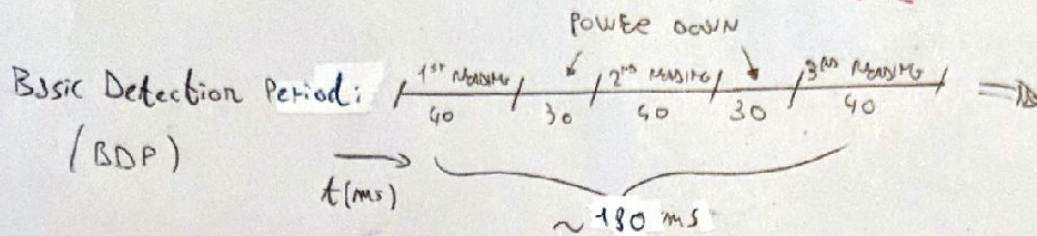 POWER DOWN
Basic Detection Period: 1ST READING 2ND READING 3RD READING
40 30 40 30 40
(BDP)
t(ms)
~ 180 ms